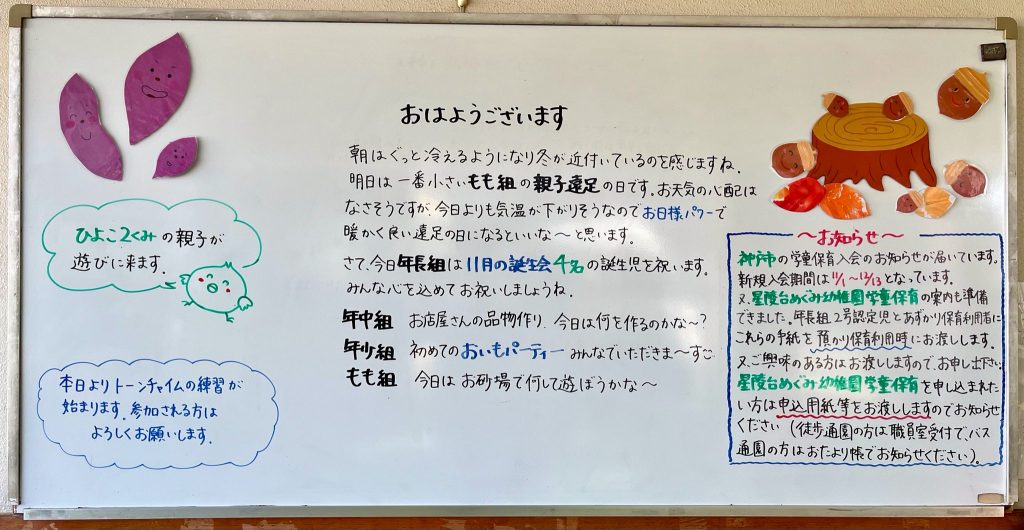 おはようございます
朝はぐっと冷えるようになり冬が近付いているのを感じますね。
明日は一番小さいもも組の親子遠足の日です。お天気の心配は
なさそうですが、今日よりも気温が下がりそうなのでお日様パワーで
暖かく良い遠足の日になるといいな〜と思います。
さて、今日年長組は11月の誕生会4名の誕生児を祝います。
みんな心を込めてお祝いしましょうね。
年中組 お店屋さんの品物作り、今日は何を作るのかな〜？
年少組 初めてのおいもパーティー みんなでいただきま〜す
もも組 今日はお砂場で何して遊ぼうかな〜
ひよこ2くみの親子が
遊びに来ます。
本日よりトーンチャイムの練習が
始まります。参加される方は
よろしくお願いします。
〜お知らせ〜
神戸市の学童保育入会のお知らせが届いています。
新規入会期間は11/1〜12/13となっています。
又、星陵台めぐみ幼稚園学童保育の案内も準備
できました。年長組、2号認定児とあずかり保育利用者に
これらの手紙を預かり保育利用時にお渡しします。
又、ご興味のある方はお渡ししますので、お申し出下さい。
星陵台めぐみ幼稚園学童保育を申し込まれた
い方は申込用紙等をお渡ししますのでお知らせ
ください（徒歩通園の方は職員室受付で、バス
通園の方はおたより帳でお知らせください）。